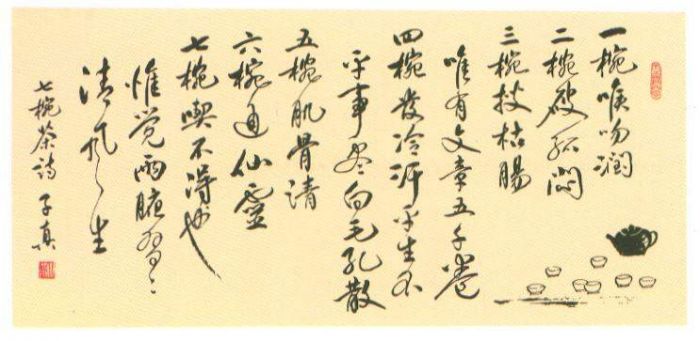 一椀喉吻润
二椀破孤闷
三椀搜枯肠
唯有文章五千卷
四椀发冷汗平生不
平事尽向毛孔散
五椀肌骨清
六椀通仙灵
七椀喫不得也
惟觉两腋習々
清风生
七椀茶诗 子真